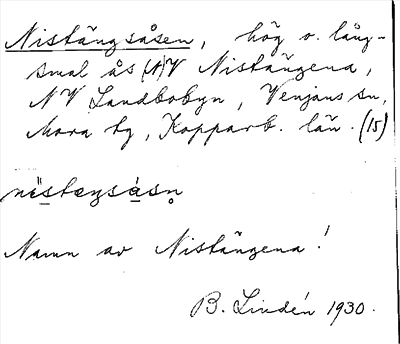 Nistängsåsen, hög o. lång-
smal ås (N)V Nistängena,
NV Landbobyn, Venjans sn,
Mora tg, Kopparb. län. (15)
Namn av Nistängena!
B. Lindén 1930.